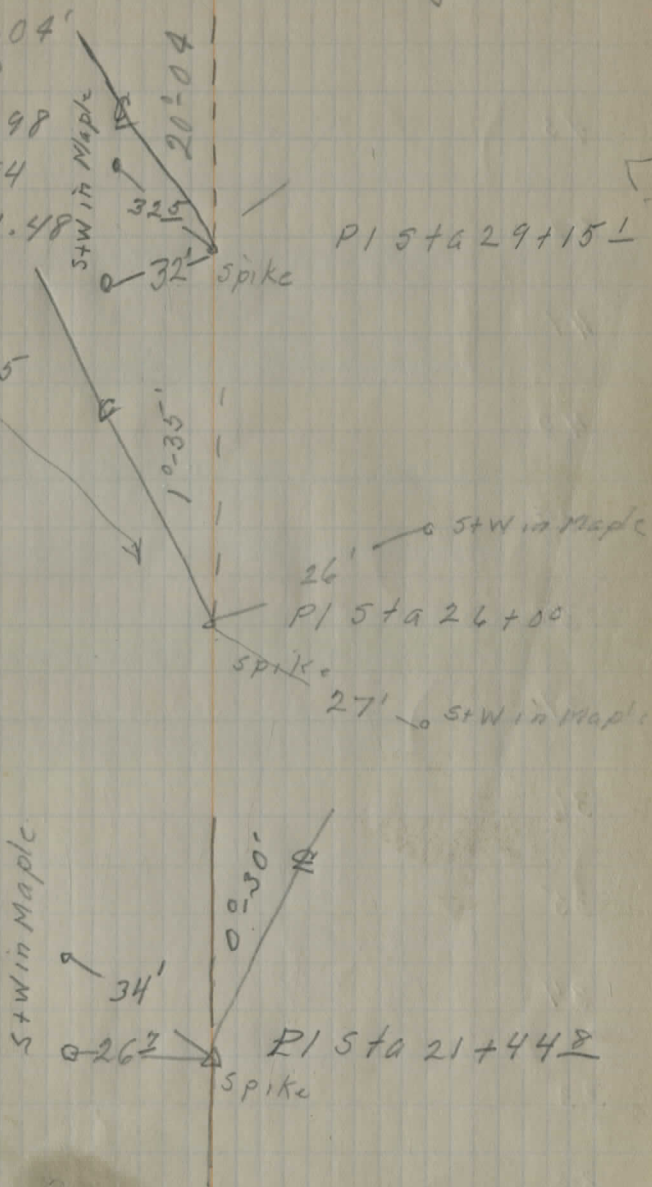 04'
98
4
.48
S+W in Maple
20°-04
32 5
32'
Spike
PI Sta 29+15 1
5
1°-35'
S+W in Maple
26'
PI Sta 26+00
Spike
27'
S+W in Maple
S+W in Maple
0°-30'
34'
26 7
PI Sta 21+44 8
Spike